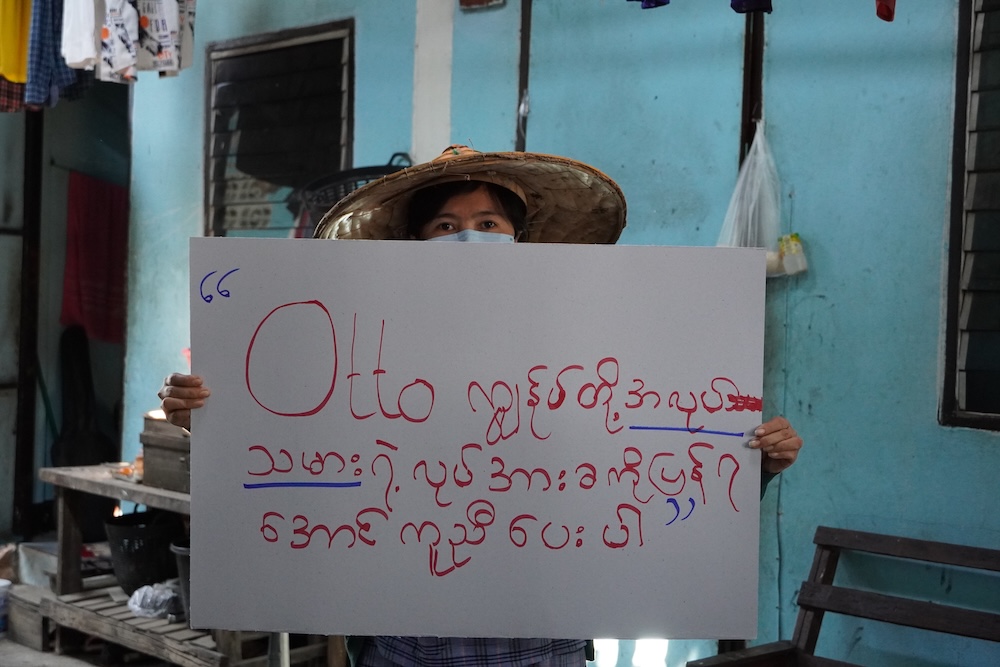 “Otto ကျွန်ုပ်တို့အလုပ်
သမားရဲ့ လုပ်အားခကိုပြန်ရ
အောင် ကူညီပေးပါ”